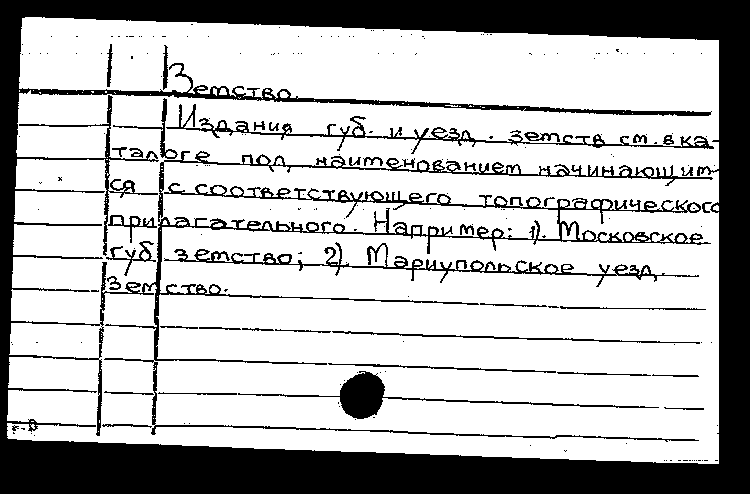 Земство.
Издания губ. и уезд. земств см. в ка-
талоге под наименованием начинающим-
ся с соответствующего топографического
прилагательного. Например: 1). Московское
губ. земство; 2). Мариупольское уезд.
земство.